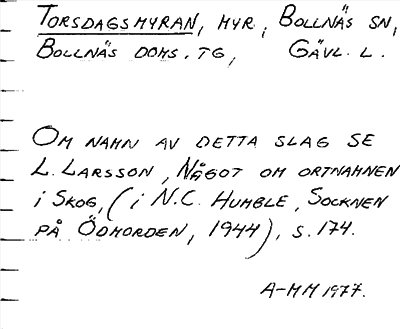 TORSDAGSMYRAN, MYR, BOLLNÄS SN,
BOLLNÄS DOMS. TG, GÄVL. L.
OM NAMN AV DETTA SLAG SE
L. LARSSON, NÅGOT OM ORTNAMNEN
I SKOG, (I N.C. HUMBLE, SOCKNEN
PÅ ÖDMORDEN, 1944), S. 174.
A-MM 1977.